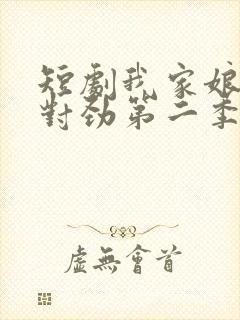 短劇我家娘
對勁第二季
虛無會首